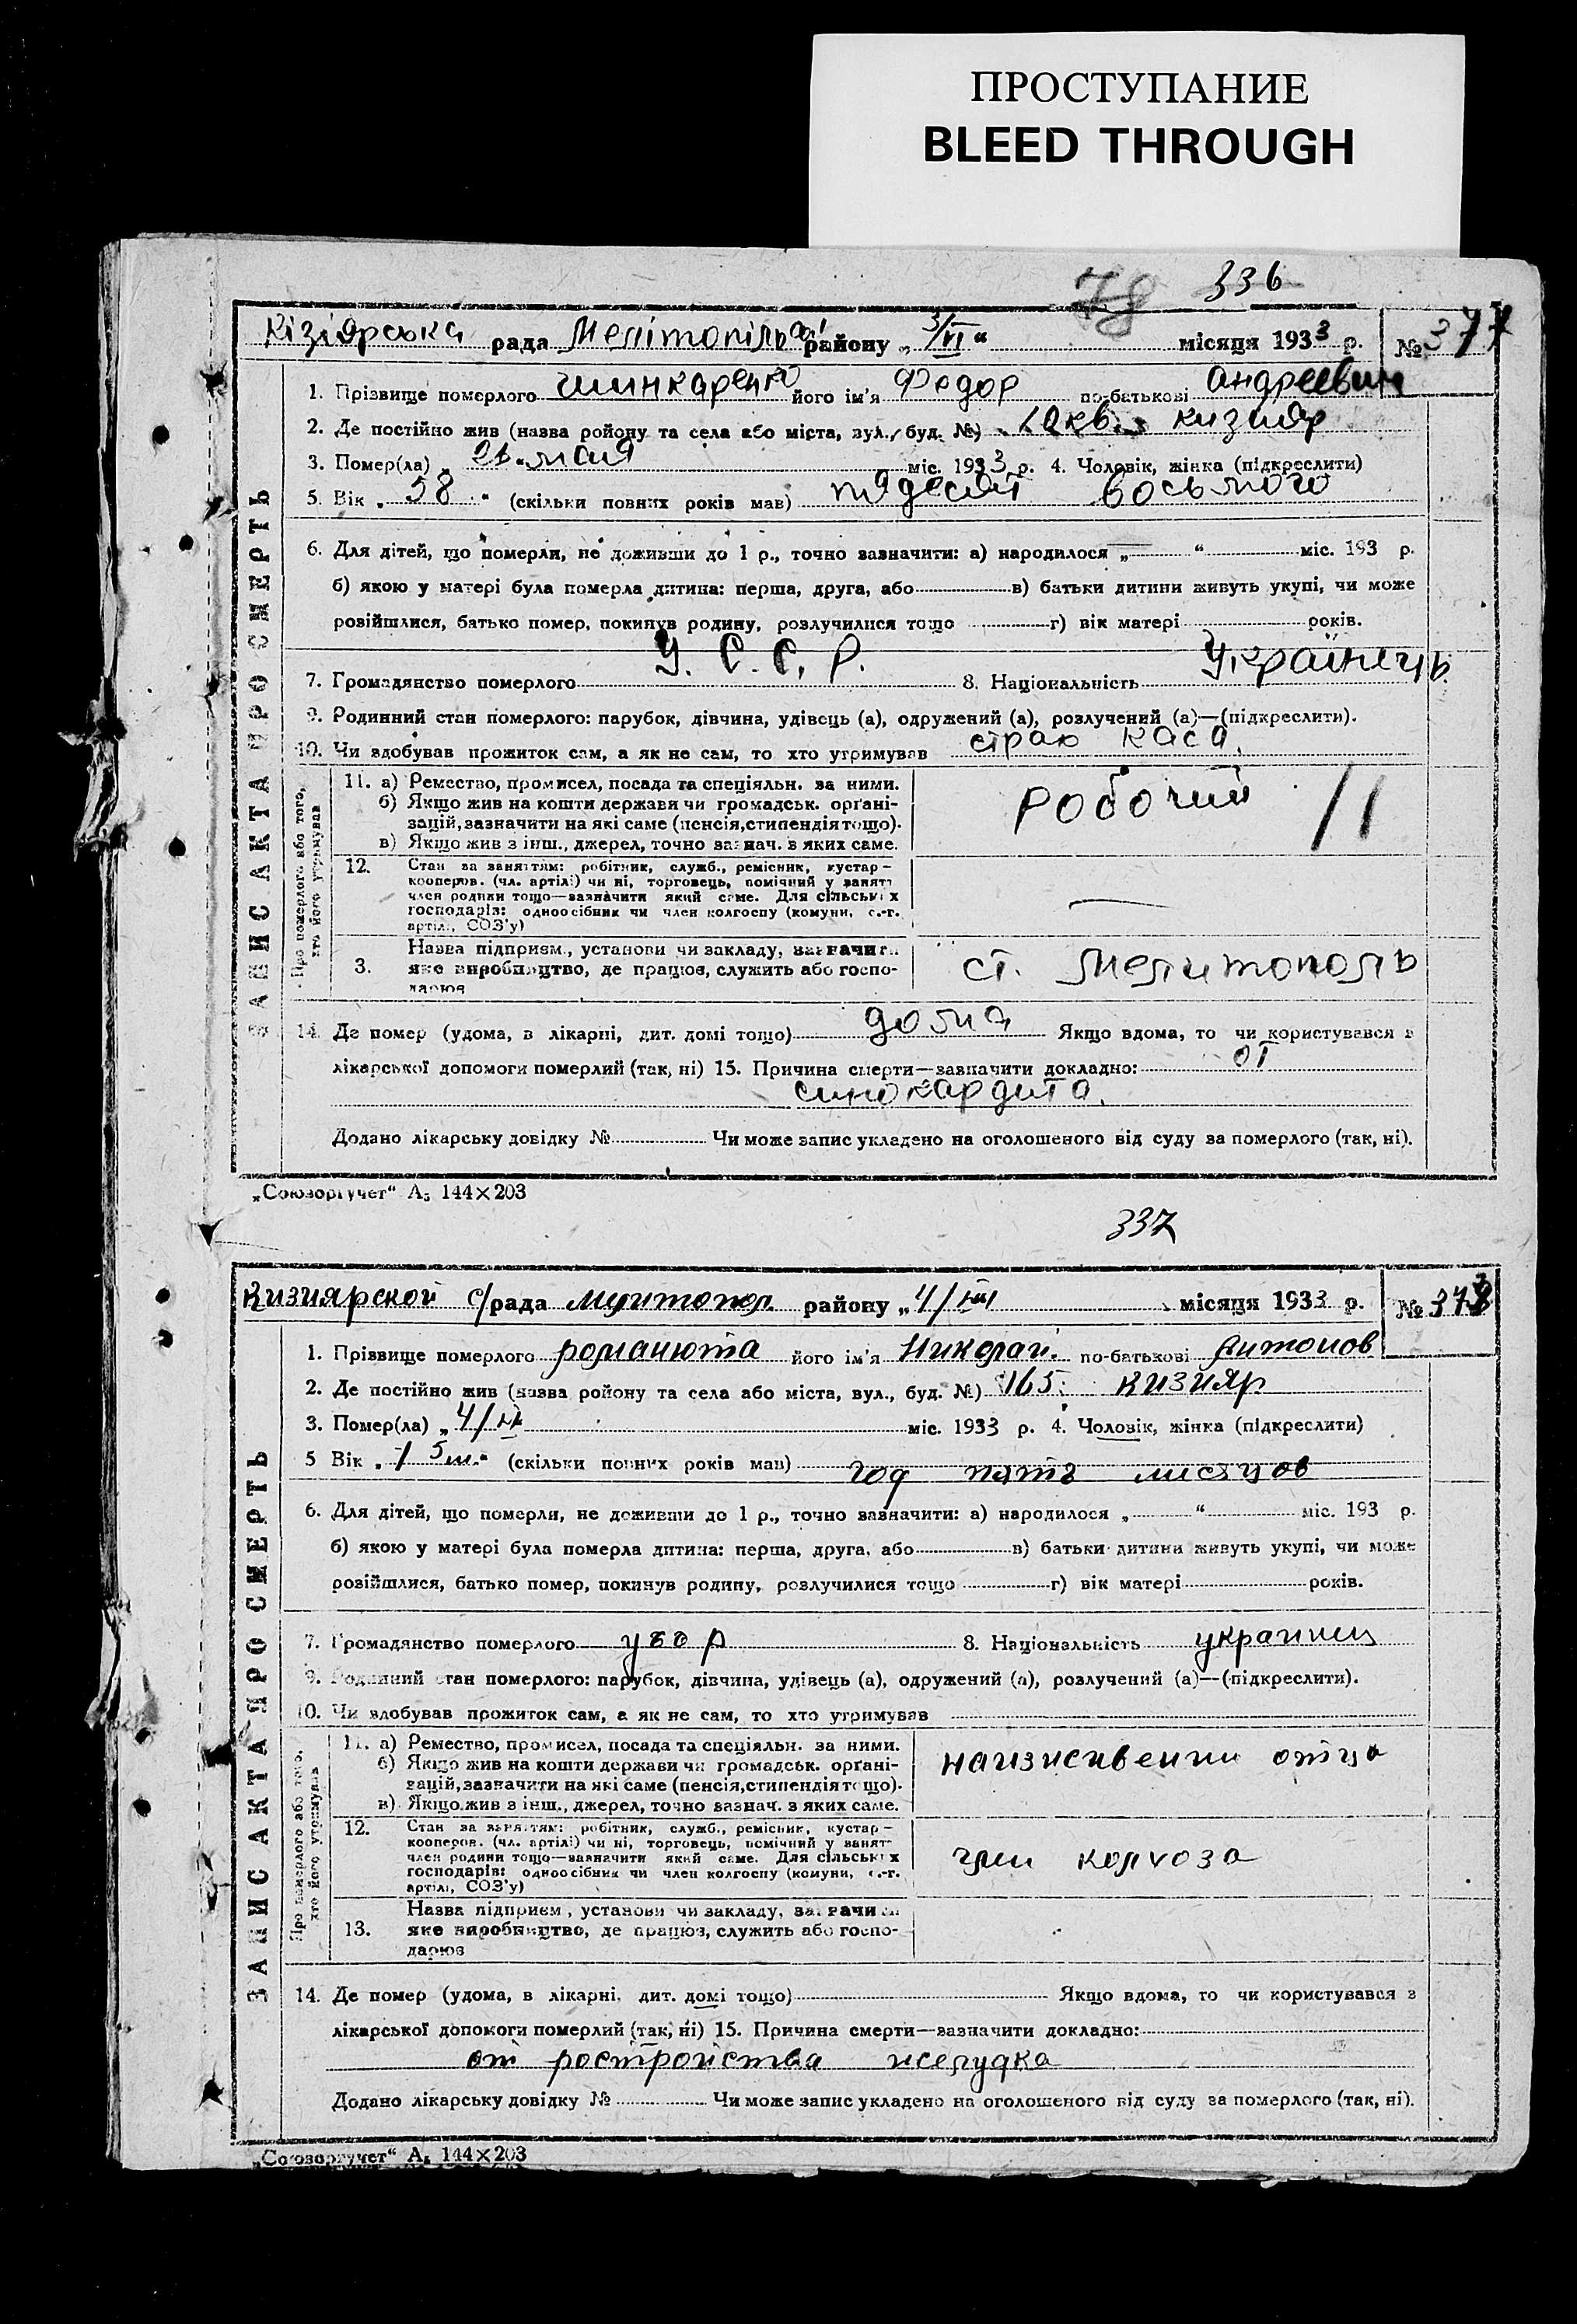 ПРОСТУПАНИЕ
BLEED THROUGH
78 336
Кізіярська рада Мелітопільс. району „3/VI“ місяця 1933 р. № 377
ЗАПИС АКТА ПРО СМЕРТЬ
1. Прізвище померлого шинкаренко його ім'я Федор по-батькові андреевич
2. Де постійно жив (назва району та села або міста, вул., буд. №) кизияр
3. Помер(ла) „ мая міс. 1933 р. 4. Чоловік, жінка (підкреслити)
5. Вік „58“ (скільки повних років мав) пядесят восьмого
6. Для дітей, що померли, не доживши до 1 р., точно зазначити: а) народилося „ “ міс. 193 р.
б) якою у матері була померла дитина: перша, друга, або в) батьки дитини живуть укупі, чи може
розійшлися, батько помер, покинув родину, розлучилися тощо г) вік матері років.
7. Громадянство померлого У. С. С. Р. 8. Національність Українець
9. Родинний стан померлого: парубок, дівчина, удівець (а), одружений (а), розлучений (а)—(підкреслити).
10. Чи здобував прожиток сам, а як не сам, то хто утримував страх каса.
Про померлого або того, хто його утримував
11. а) Ремество, промисел, посада та спеціяльн. за ними.
б) Якщо жив на кошти держави чи громадськ. органі-
зацій, зазначити на які саме (пенсія, стипендія тощо).
в) Якщо жив з інш., джерел, точно зазнач. з яких саме.
Робочий 11
12. Стан за заняттям: робітник, служб., ремісник, кустар-
кооперов. (чл. артілі) чи ні, торговець, помічний у занят
член родини тощо—зазначити який саме. Для сільських
господарів: одноосібник чи член колгоспу (комуни, с.-г.
артілі, СОЗ'у)
3. Назва підприєм., установи чи закладу, зазначити
яке виробництво, де працює, служить або госпо-
дарює
ст. Мелитополь
14. Де помер (удома, в лікарні, дит. домі тощо) дома Якщо вдома, то чи користувався з
лікарської допомоги померлий (так, ні) 15. Причина смерти—зазначити докладно: от
Додано лікарську довідку № Чи може запис укладено на оголошеного від суду за померлого (так, ні).
„Союзоргучет“ А5 144×203
337
Кизиярской с/рада мелитопол району „4/ місяця 1933 р. № 378
ЗАПИС АКТА ПРО СМЕРТЬ
1. Прізвище померлого романюта його ім'я Николай по-батькові Антонов
2. Де постійно жив (назва району та села або міста, вул., буд. №) 165 кизияр
3. Помер(ла) „4/ міс. 1933 р. 4. Чоловік, жінка (підкреслити)
5 Вік „1 5м.“ (скільки повних років мав) год пять мисяцов
6. Для дітей, що померли, не доживши до 1 р., точно зазначити: а) народилося „ “ міс. 193 р.
б) якою у матері була померла дитина: перша, друга, або в) батьки дитини живуть укупі, чи може
розійшлися, батько помер, покинув родину, розлучилися тощо г) вік матері років.
7. Громадянство померлого усср 8. Національність украинец
9. Родинний стан померлого: парубок, дівчина, удівець (а), одружений (а), розлучений (а)—(підкреслити).
10. Чи здобував прожиток сам, а як не сам, то хто утримував
Про померлого або того, хто його утримував
11. а) Ремество, промисел, посада та спеціяльн. за ними.
б) Якщо жив на кошти держави чи громадськ. органі-
зацій, зазначити на які саме (пенсія, стипендія тощо).
в) Якщо жив з інш., джерел, точно зазнач. з яких саме.
отца
12. Стан за заняттям: робітник, служб., ремісник, кустар-
кооперов. (чл. артілі) чи ні, торговець, помічний у занят
член родини тощо—зазначити який саме. Для сільських
господарів: одноосібник чи член колгоспу (комуни, с.-г.
артілі, СОЗ'у)
член колхоза
13. Назва підприєм, установи чи закладу, зазначити
яке виробництво, де працює, служить або госпо-
дарює
14. Де помер (удома, в лікарні, дит. домі тощо) Якщо вдома, то чи користувався з
лікарської допомоги померлий (так, ні) 15. Причина смерти—зазначити докладно:
от ростройства желудка
Додано лікарську довідку № Чи може запис укладено на оголошеного від суду за померлого (так, ні).
„Союзоргучет“ А5 144×203